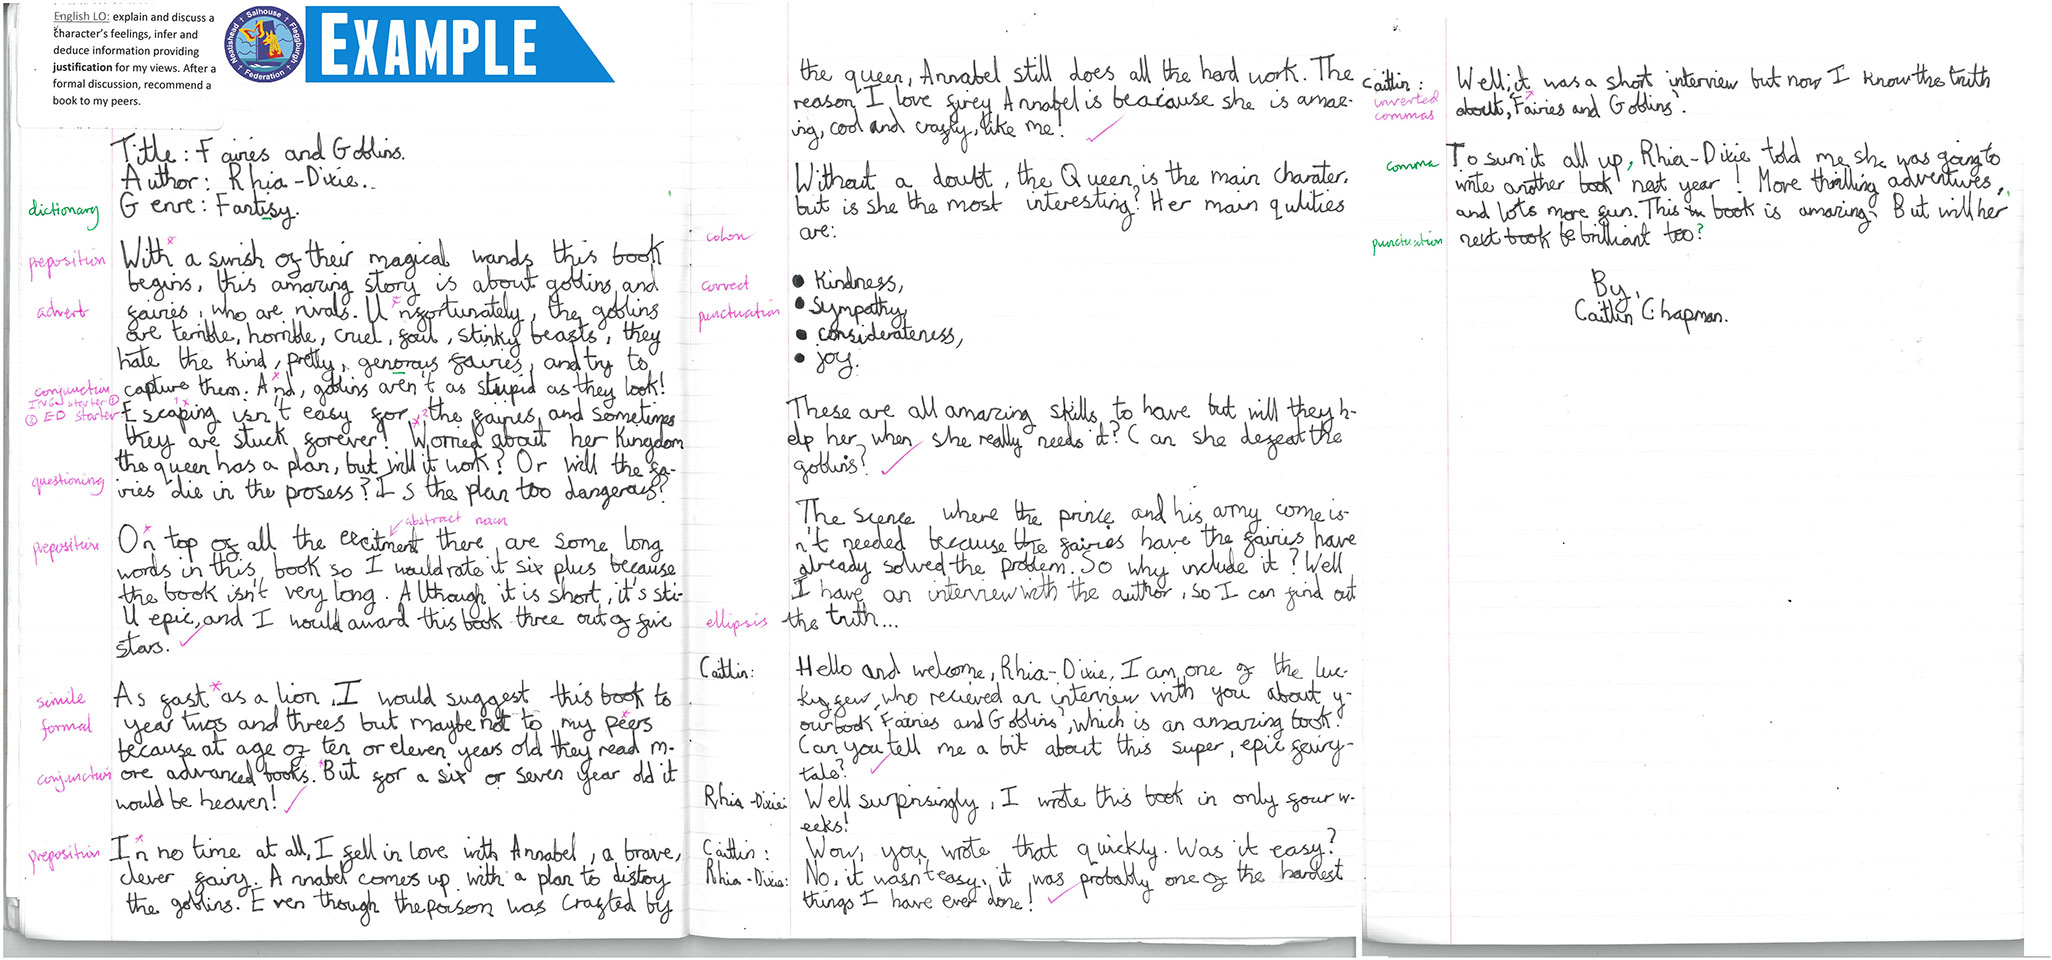 English LO: explain and discuss a
character's feelings, infer and
deduce information providing
justification for my views. After a
formal discussion, recommend a
book to my peers.
Nautishead • Salhouse • Fleggburgh
Federation
EXAMPLE
Title: Fairies and Goblins.
Author: Rhia-Dixie..
dictionary
Genre: Fantisy.
preposition
With a swish of their magical wands this book
begins, this amazing story is about goblins and
advert
fairies, who are rivals. Unfortunately, the goblins
are terrible, horrible, cruel, foul, stinky beasts, they
hate the kind, pretty, genorous fairies, and try to
conjunction
capture them. And, goblins aren't as stupid as they look!
ING starter ①
② ED starter
Escaping isn't easy for the fairies, and sometimes
they are stuck forever! Worried about her Kingdom
the queen has a plan, but will it work? Or will the fa-
questioning
iries die in the prosess? Is the plan too dangerous?
abstract noun
preposition
On top of all the excitment there are some long
words in this book so I would rate it six plus because
the book isn't very long. Although it is short, it's sti-
ll epic, and I would award this book three out of five
stars.
simile
As fast as a lion, I would suggest this book to
formal
year twos and threes but maybe not to my peers
because at age of ten or eleven years old they read m-
conjunction
ore advanced books. But for a six or seven year old it
would be heaven!
preposition
In no time at all, I fell in love with Annabel, a brave,
clever fairy. Annabel comes up with a plan to distroy
the goblins. Even though the poison was crafted by
the queen, Annabel still does all the hard work. The
reason I love firey Annabel is beacause she is amaz-
ing, cool and crazy, like me!
Without a doubt, the Queen, is the main charater,
but is she the most interesting? Her main qulities
colon
are:
correct
punctuation
• Kindness,
• Sympathy,
• considerateness,
• joy.
These are all amazing skills to have but will they h-
elp her, when she really needs it? Can she defeat the
goblins?
The scence where the prince and his army come is-
n't needed because the fairies have the fairies have
already solved the problem. So why include it? Well
I have an interview with the author, so I can find out
ellipsis
the truth...
Caitlin:
Hello and welcome, Rhia-Dixie, I am one of the luc-
ky few, who recieved an interview with you about y-
our book 'Fairies and Goblins', which is an amazing book.
Can you tell me a bit about this super, epic fairy-
tale?
Rhia-Dixie:
Well surprisingly, I wrote this book in only four w-
eeks!
Caitlin:
Wow, you wrote that quickly. Was it easy?
Rhia-Dixie:
No, it wasn't easy, it was probably one of the hardest
things I have ever done!
Caitlin:
Well, it was a short interview but now I know the truth
unverted
commas
about, 'Fairies and Goblins'.
comma
To sum it all up, Rhia-Dixie told me she was going to
write another book next year! More thrilling adventures,
and lots more fun. This book is amazing. But will her
punctuation
next book be brilliant too?
By,
Caitlin Chapman.